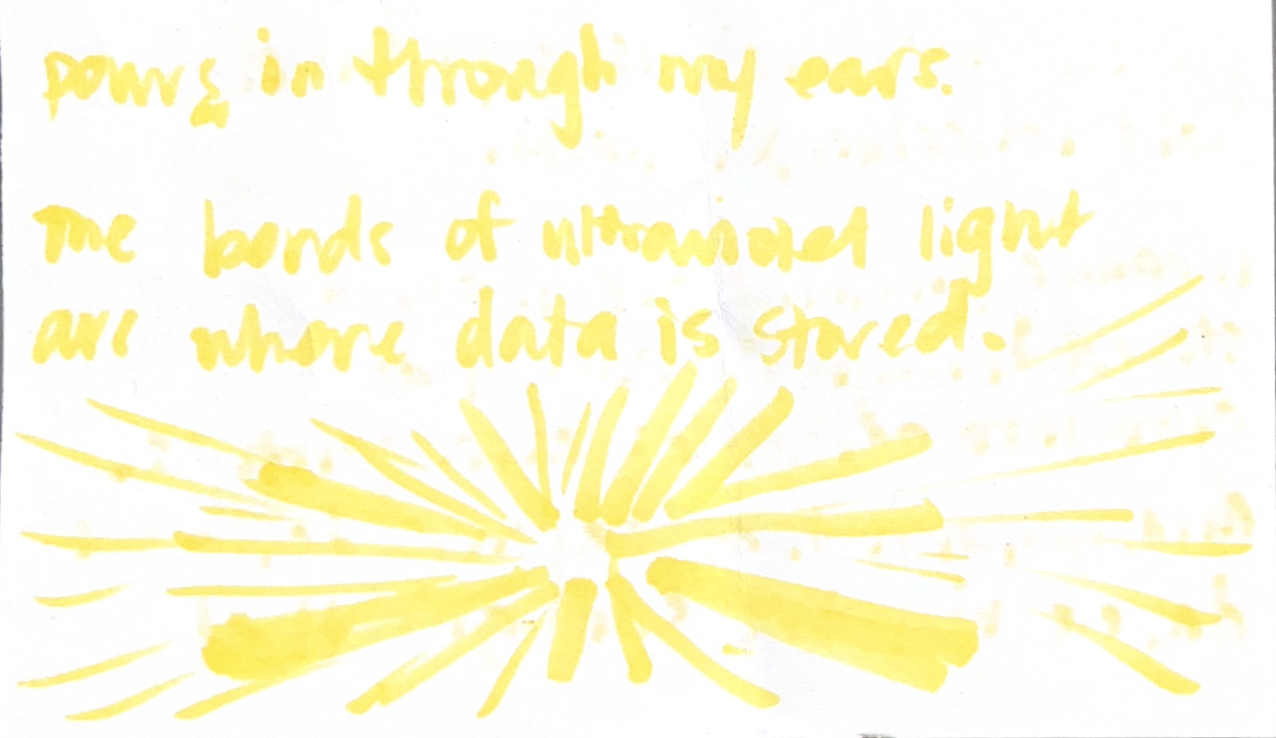 pours in through my ears.
The bands of ultraviolet light
are where data is stored.